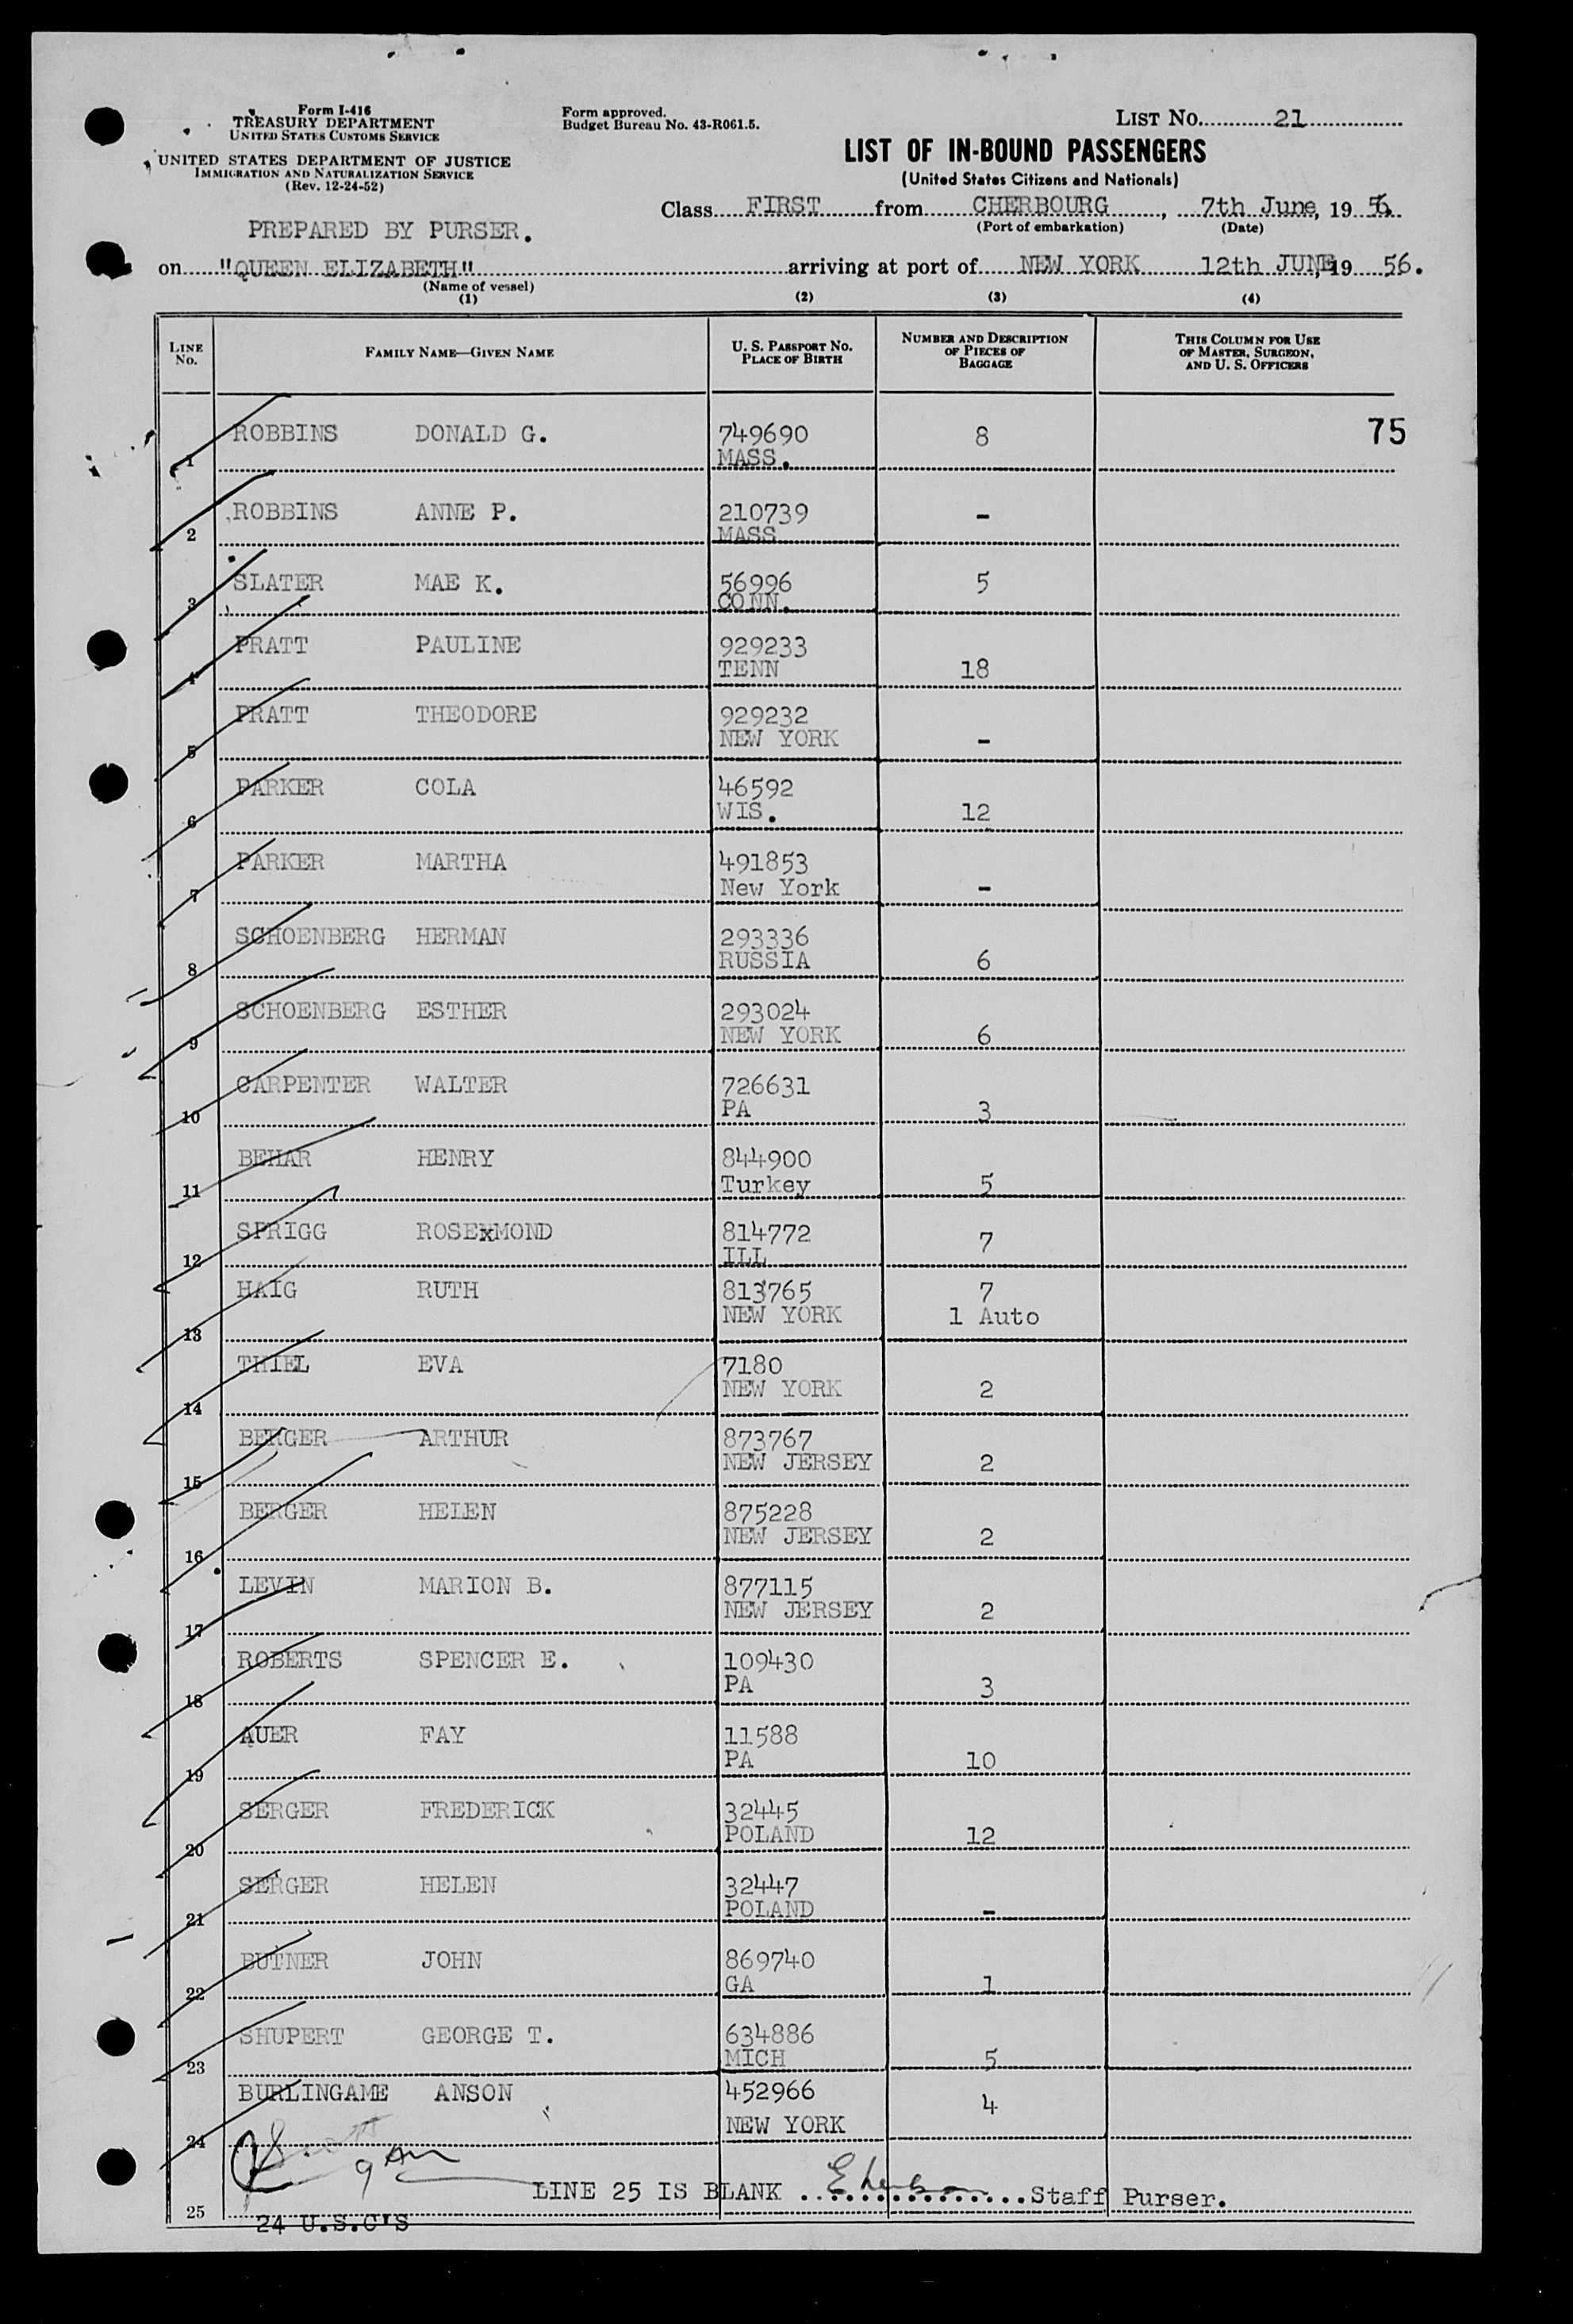 Form I-416
TREASURY DEPARTMENT
UNITED STATES CUSTOMS SERVICE
UNITED STATES DEPARTMENT OF JUSTICE
IMMIGRATION AND NATURALIZATION SERVICE
(Rev. 12-24-52)
Form approved.
Budget Bureau No. 43-R061.5.
LIST No. 21
LIST OF IN-BOUND PASSENGERS
(United States Citizens and Nationals)
Class FIRST from CHERBOURG, 7th June, 19 56.
(Port of embarkation) (Date)
PREPARED BY PURSER.
on "QUEEN ELIZABETH" arriving at port of NEW YORK 12th JUNE, 19 56.
(Name of vessel)
(1) (2) (3) (4)
LINE No. FAMILY NAME—GIVEN NAME U. S. PASSPORT NO. PLACE OF BIRTH NUMBER AND DESCRIPTION OF PIECES OF BAGGAGE THIS COLUMN FOR USE OF MASTER, SURGEON, AND U. S. OFFICERS
ROBBINS DONALD G. 749690 8 75
1 MASS.
ROBBINS ANNE P. 210739 -
2 MASS
SLATER MAE K. 56996 5
3 CONN.
PRATT PAULINE 929233
4 TENN 18
PRATT THEODORE 929232
5 NEW YORK -
PARKER COLA 46592
6 WIS. 12
PARKER MARTHA 491853
7 New York -
SCHOENBERG HERMAN 293336
8 RUSSIA 6
SCHOENBERG ESTHER 293024
9 NEW YORK 6
CARPENTER WALTER 726631
10 PA 3
BEHAR HENRY 844900
11 Turkey 5
SPRIGG ROSExMOND 814772 7
12 ILL
HAIG RUTH 813765 7
13 NEW YORK 1 Auto
THIEL EVA 7180
14 NEW YORK 2
BERGER ARTHUR 873767
15 NEW JERSEY 2
BERGER HELEN 875228
16 NEW JERSEY 2
LEVIN MARION B. 877115
17 NEW JERSEY 2
ROBERTS SPENCER E. 109430
18 PA 3
AUER FAY 11588
19 PA 10
SERGER FREDERICK 32445
20 POLAND 12
SERGER HELEN 32447
21 POLAND -
BUTNER JOHN 869740
22 GA 1
SHUPERT GEORGE T. 634886
23 MICH 5
BURLINGAME ANSON 452966 4
24 NEW YORK
LINE 25 IS BLANK ................Staff Purser.
25
24 U.S.C'S